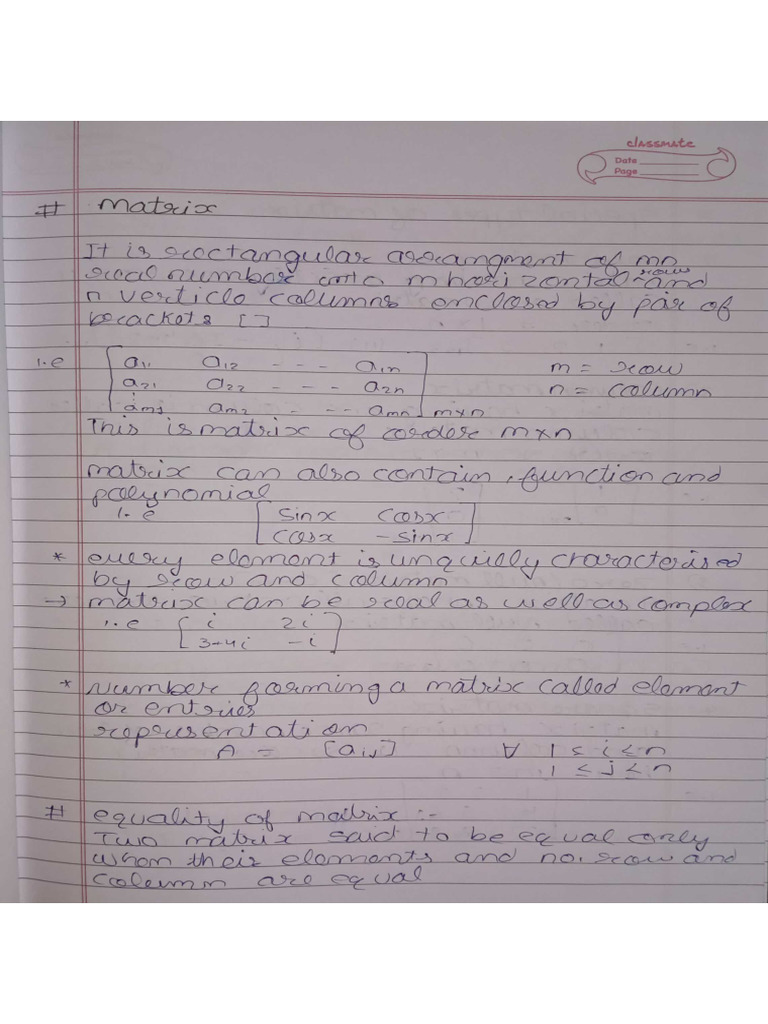 classmate
Date
Page
# Matrix
It is rectangular arrangment of mn
real number into m horizontal row and
n verticle columns enclosed by pair of
brackets []
i.e [a11 a12 --- a1n m = row
a21 a22 - - - a2n n = column
am1 am2 - -- amn] m×n
This is matrix of order m×n
matrix can also contain, function and
polynomial
i.e [sinx cosx
cosx -sinx]
* every element is unquielly characterised
by row and column
→ matrix can be real as well as complex
i.e [i 2i
3+4i -i]
* Number forming a matrix called element
or entries
representation
A = [aij] ∀ 1 ≤ i ≤ n
1 ≤ j ≤ n
# equality of matrix :-
Two matrix said to be equal only
when their elements and no. row and
column are equal